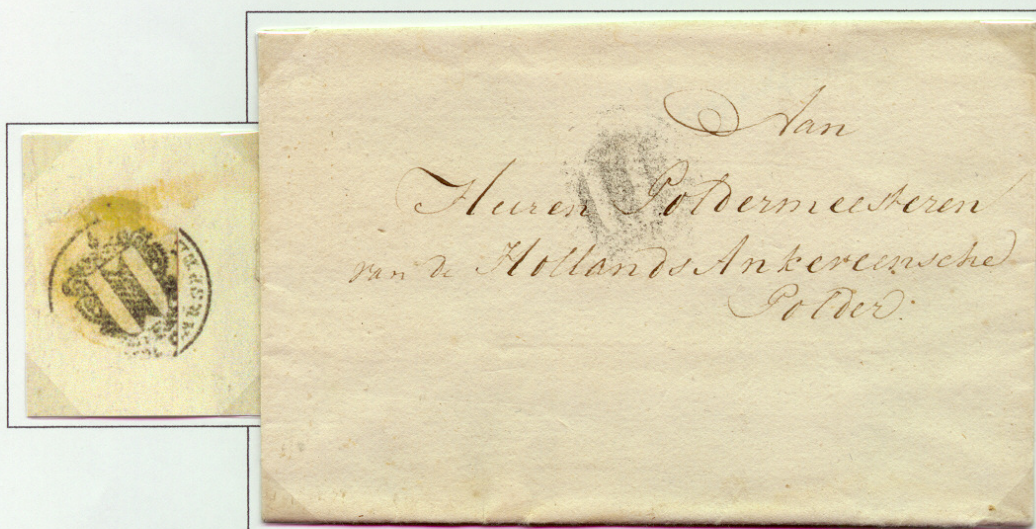 Aan
Heeren Poldermeesteren
van de Hollands Ankereensche
Polder.